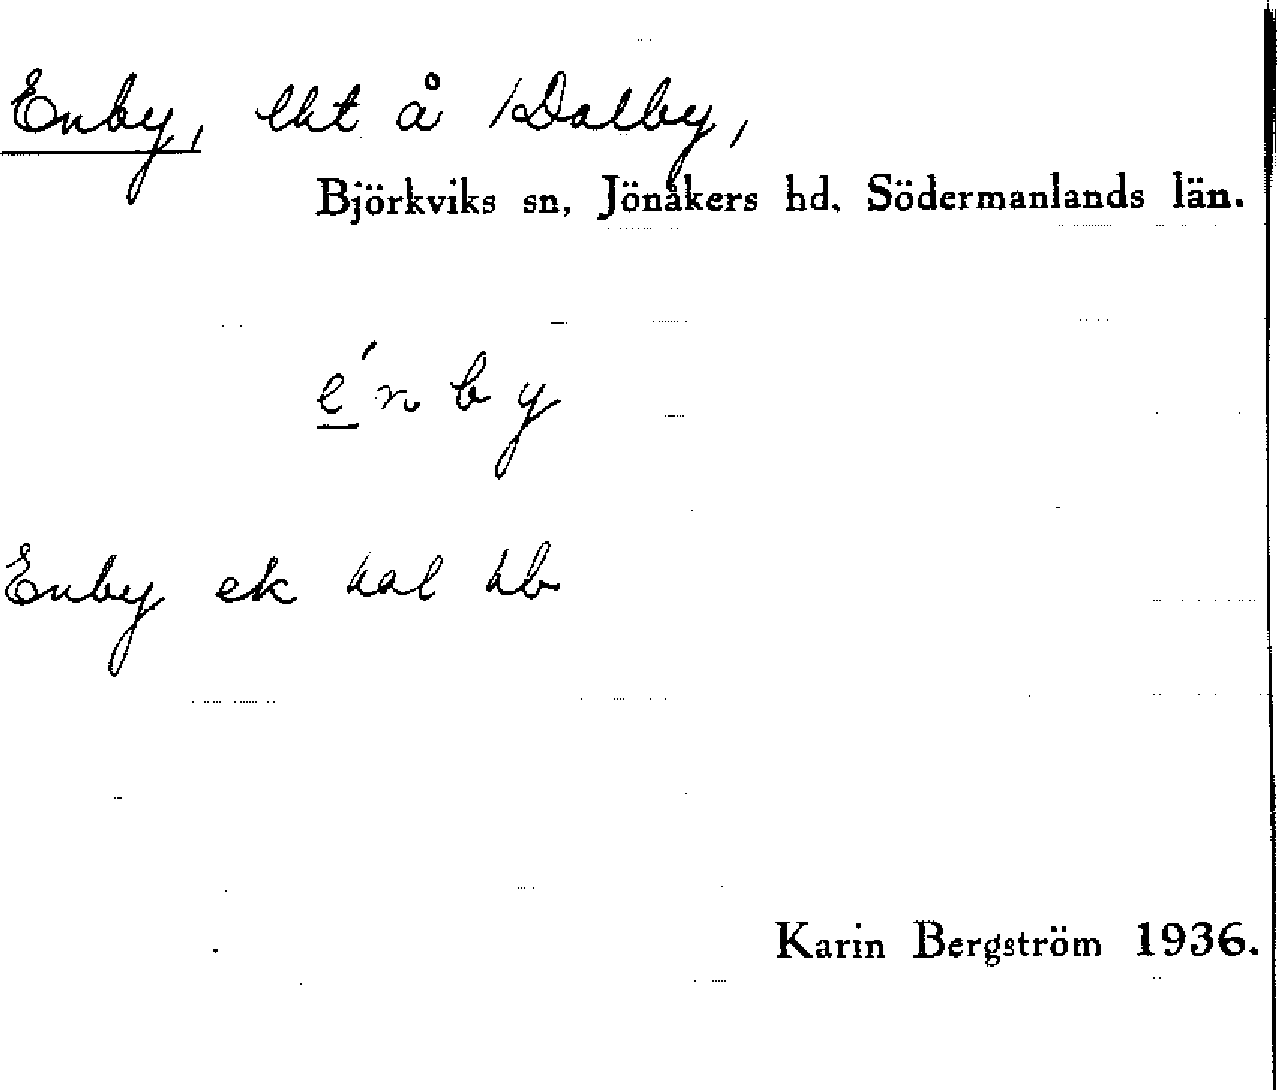 Enby, lht å /Dalby,
Björkviks sn, Jönåkers hd. Södermanlands län.
énby
Enby ek hal hb
Karin Bergström 1936.